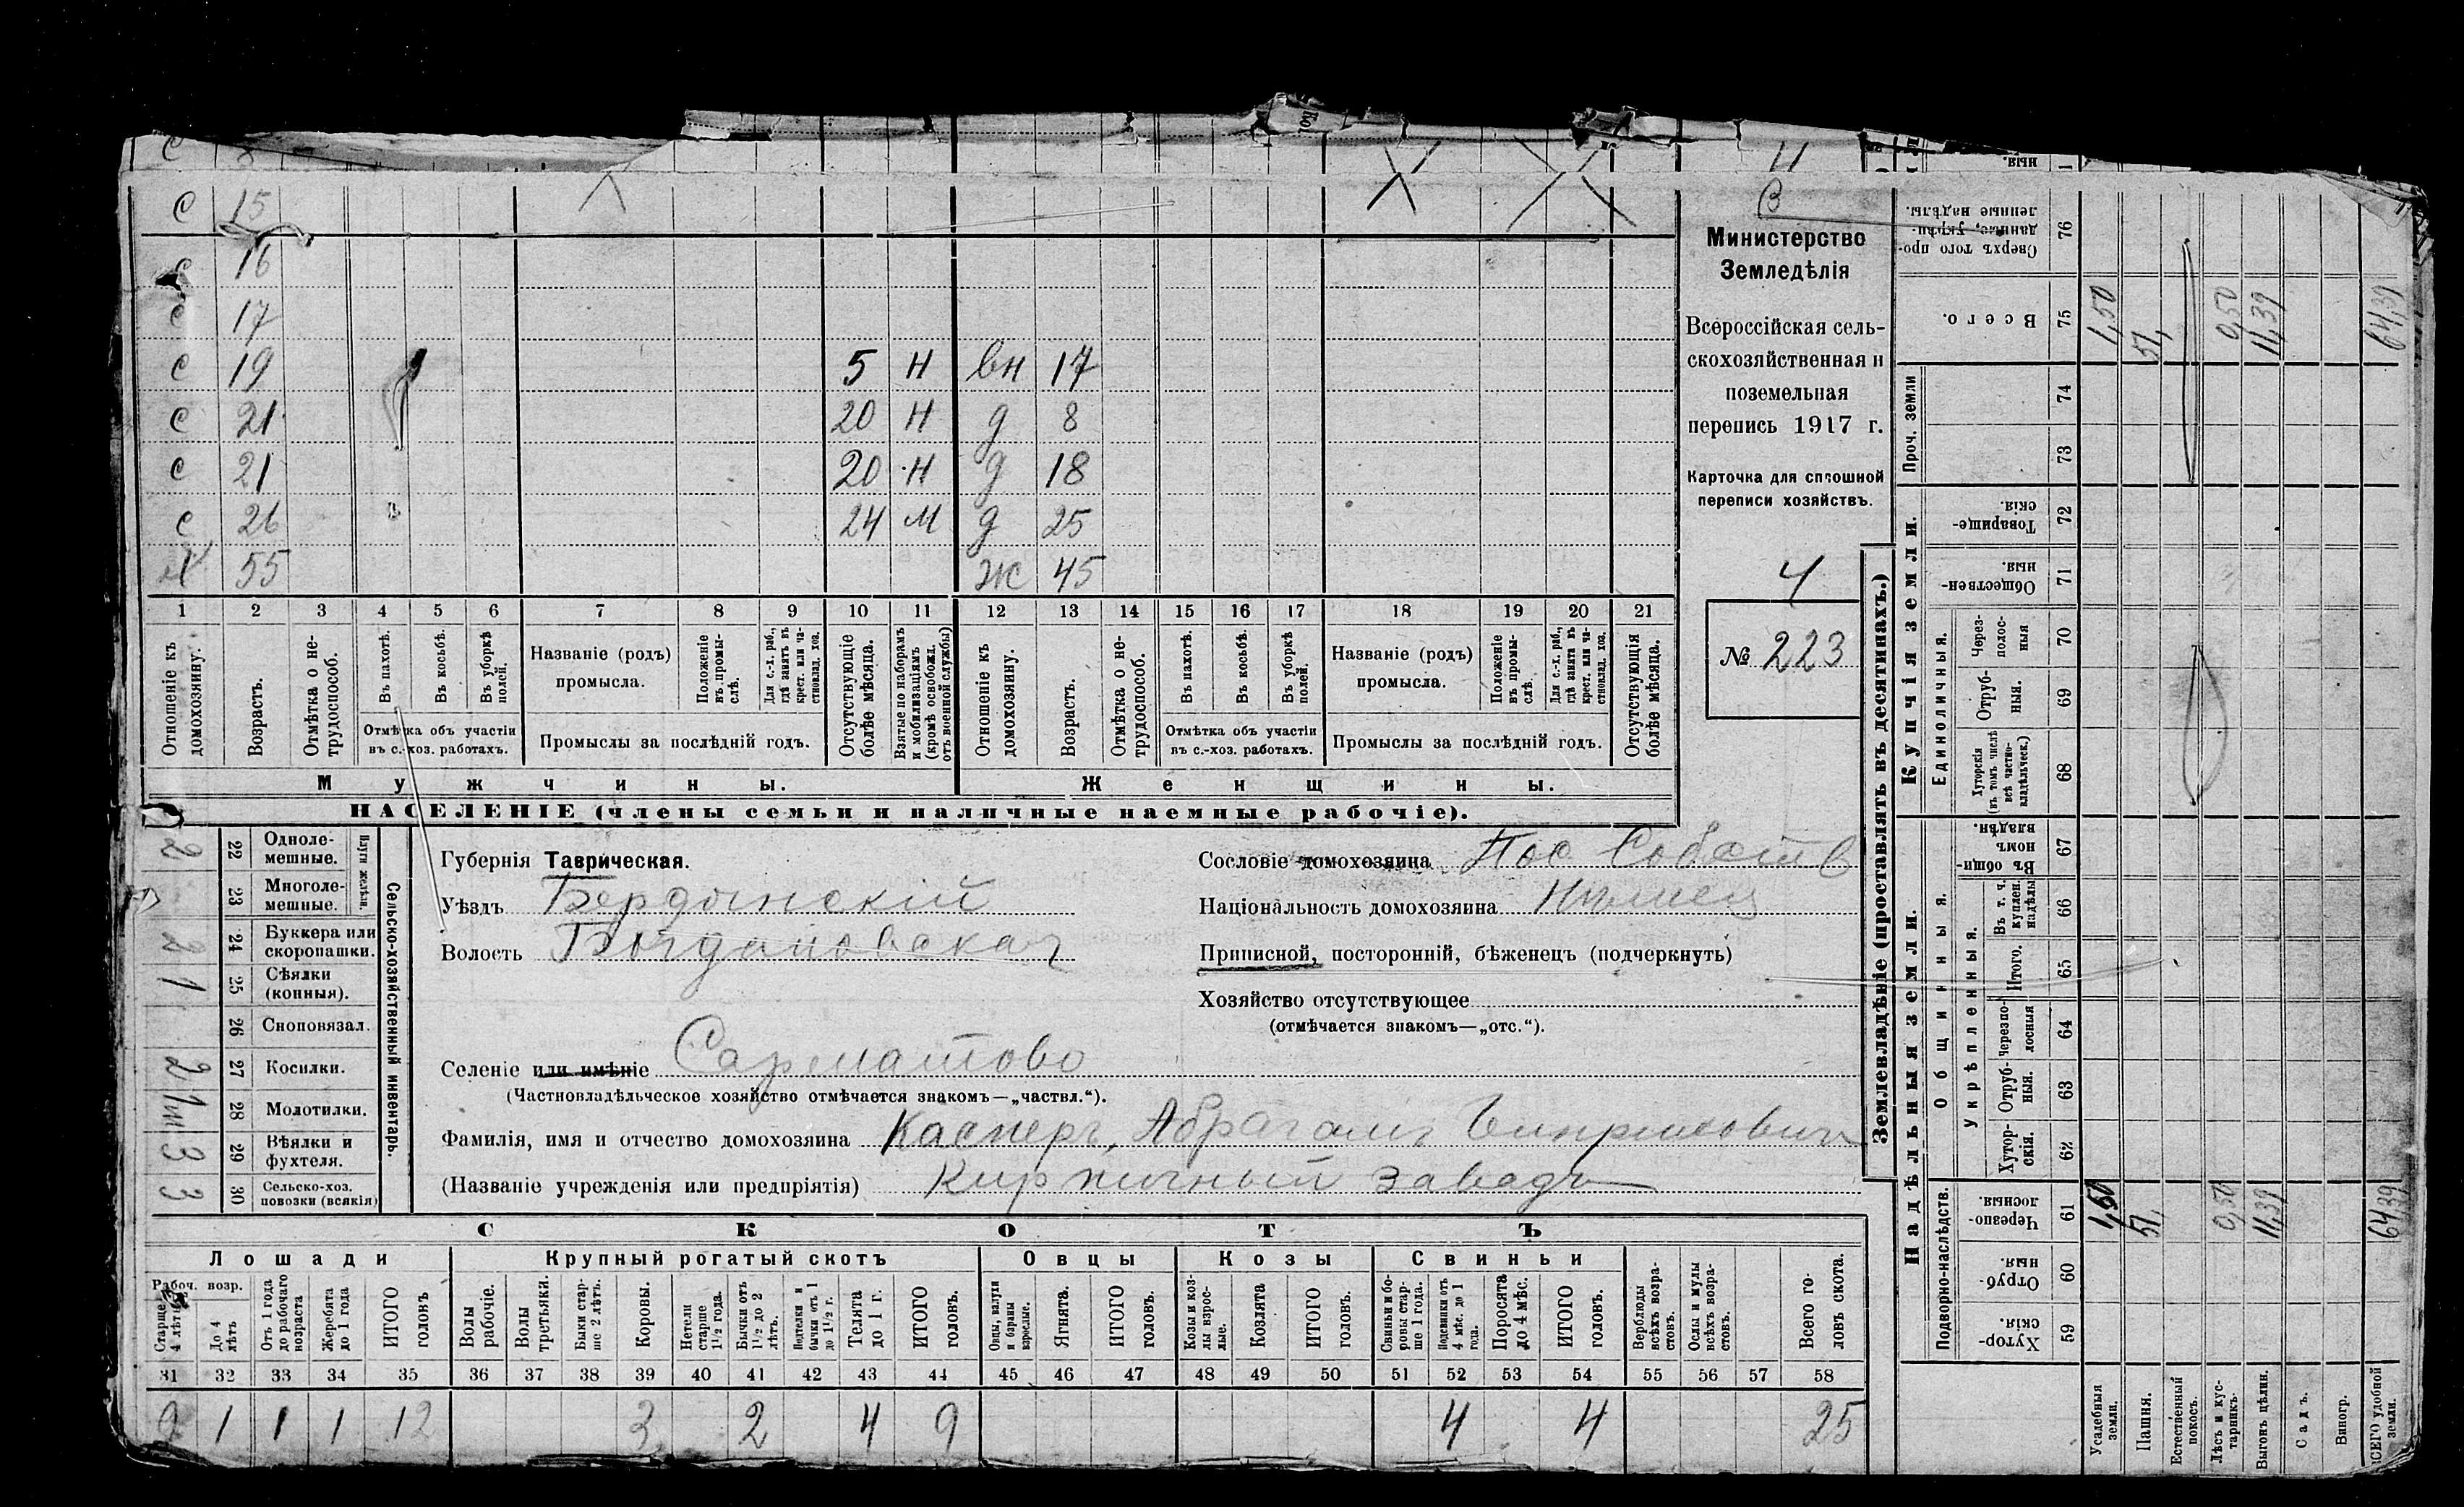 С 15
С 16
С 17
С 19 5 Н вн 17
С 21 20 Н д 8
С 21 20 Н д 18
С 26 24 М д 25
55 ж 45
1 2 3 4 5 6 7 8 9 10 11 12 13 14 15 16 17 18 19 20 21
Отношеніе къ домохозяину.
Возрастъ.
Отмѣтка о не-трудоспособ.
Въ пахотѣ.
Въ косьбѣ.
Въ уборкѣ полей.
Отмѣтка объ участіи въ с.-хоз. работахъ.
Названіе (родъ) промысла.
Положеніе въ промы-слѣ.
Для с.-х. раб., гдѣ занятъ въ крест. или ча-стновлад. хоз.
Промыслы за послѣдній годъ.
Отсутствующіе болѣе мѣсяца.
Взятые по наборамъ и мобилизаціямъ (кромѣ освобожд. отъ военной службы)
Отношеніе къ домохозяину.
Возрастъ.
Отмѣтка о не-трудоспособ.
Въ пахотѣ.
Въ косьбѣ.
Въ уборкѣ полей.
Отмѣтка объ участіи въ с.-хоз. работахъ.
Названіе (родъ) промысла.
Положеніе въ промы-слѣ.
Для с.-х. раб., гдѣ занята въ крест. или ча-стновлад. хоз.
Промыслы за послѣдній годъ.
Отсутствующія болѣе мѣсяца.
Мужчины.
Женщины.
НАСЕЛЕНІЕ (члены семьи и наличные наемные рабочіе).
Министерство
Земледѣлія
Всероссійская сель-
скохозяйственная и
поземельная
перепись 1917 г.
Карточка для сплошной
переписи хозяйствъ.
4
№ 223
Сельско-хозяйственный инвентарь.
Плуги желѣзн.
22 Одноле-мешные. 2
23 Многоле-мешные.
24 Буккера или скоропашки. 2
25 Сѣялки (конныя). 1
26 Сноповязал.
27 Косилки. 2
28 Молотилки.
29 Вѣялки и фухтеля. 3
30 Сельско-хоз. повозки (всякія) 3
Губернія Таврическая.
Уѣздъ Бердянскій
Волость Богдановская
Селеніе или имѣніе
(Частновладѣльческое хозяйство отмѣчается знакомъ—„частвл.“).
Фамилія, имя и отчество домохозяина Касперъ, Абрагамъ Генриховичъ
(Названіе учрежденія или предпріятія) Кирпичный заводъ
Сословіе домохозяина Пос Собств
Національность домохозяина Нѣмец
Приписной, посторонній, бѣженецъ (подчеркнуть)
Хозяйство отсутствующее
(отмѣчается знакомъ—„отс.“).
СКОТЪ
Лошади Крупный рогатый скотъ Овцы Козы Свиньи
Рабоч. возр.
Старше 4 лѣтъ
До 4 лѣтъ
Отъ 1 года до рабочаго возраста
Жеребята до 1 года
ИТОГО головъ
Волы рабочіе.
Волы третьяки.
Быки стар-ше 2 лѣтъ.
Коровы.
Нетели старше 1½ года.
Бычки отъ 1½ до 2 лѣтъ.
бычки отъ 1 до 1½ г.
Телята до 1 г.
ИТОГО головъ.
Овцы, валухи и бараны взрослые.
Ягнята.
ИТОГО головъ.
Козы и коз-лы взрос-лые.
Козлята
ИТОГО головъ.
Свиньи и бо-ровы стар-ше 1 года.
Подсвинки отъ 4 мѣс. до 1 года.
Поросята до 4 мѣс.
ИТОГО головъ.
Верблюды всѣхъ возра-стовъ.
Ослы и мулы всѣхъ возра-стовъ.
Всего го-ловъ скота.
31 32 33 34 35 36 37 38 39 40 41 42 43 44 45 46 47 48 49 50 51 52 53 54 55 56 57 58
9 1 1 1 12 3 2 4 9 4 4 25
Землевладѣніе (проставлять въ десятинахъ.)
Надѣльныя земли. Купчія земли. Проч. земли
Подворно-наслѣдств.
Общинныя.
Укрѣпленныя.
Единоличныя.
Хутор-скія. 59
Отруб-ныя. 60
Черезпо-лосныя. 61 1,50 51, 0,50 11,39 64,39
Хутор-скія. 62
Отруб-ныя. 63
Черезпо-лосныя 64
Итого. 65
Въ т. ч. куплен. надѣлы 66
Въ общи-номъ владѣн. 67
Хуторскія (въ томъ числѣ всѣ частно-владѣльческ.) 68
Отруб-ныя. 69
Через-полос-ныя 70
Обществен-ныя. 71
Товарище-скія. 72
73
74
Всего. 75 1,50 51, 0,50 11,39 64,39
Сверхъ того про-данные, укрѣп-ленные надѣлы. 76
Усадебныя земли.
Пашня.
Естественный покосъ.
Лѣсъ и кус-тарникъ.
Выгонъ цѣлин.
Садъ.
Виногр.
ВСЕГО удобной земли.